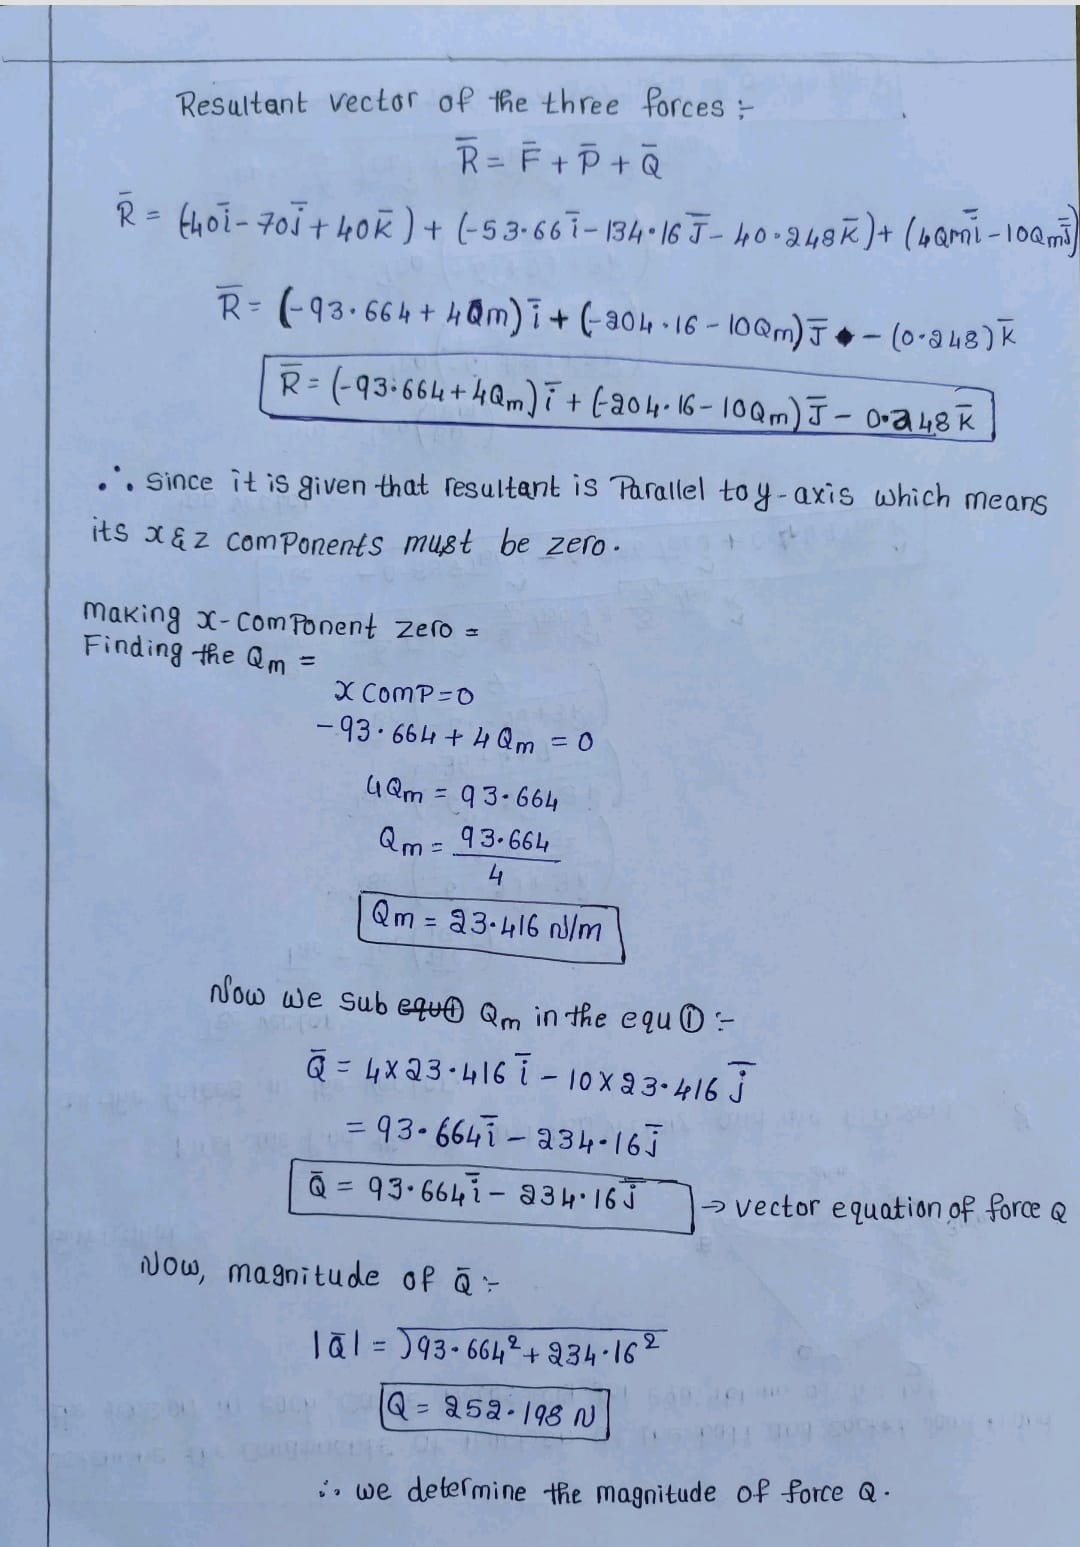 Resultant vector of the three forces :-
R̄ = F̄ + P̄ + Q̄
R̄ = (-40ī - 70j̄ + 40k̄) + (-53.66ī - 134.16j̄ - 40.248k̄) + (4Qmī - 10Qmj̄)
R̄ = (-93.664 + 4Qm)ī + (-204.16 - 10Qm)j̄ - (0.248)k̄
R̄ = (-93.664 + 4Qm)ī + (-204.16 - 10Qm)j̄ - 0.248k̄
∴ since it is given that resultant is Parallel to y-axis which means
its x & z components must be zero.
making x-component zero =
Finding the Qm =
x comp = 0
-93.664 + 4Qm = 0
4Qm = 93.664
Qm = 93.664
4
Qm = 23.416 N/m
Now we sub equ① Qm in the equ ① :-
Q̄ = 4x23.416 ī - 10x23.416 j̄
= 93.664ī - 234.16j̄
Q̄ = 93.664ī - 234.16j̄ → vector equation of force Q
Now, magnitude of Q̄ :-
|Q̄| = √93.664² + 234.16²
Q = 252.198 N
∴ we determine the magnitude of force Q.